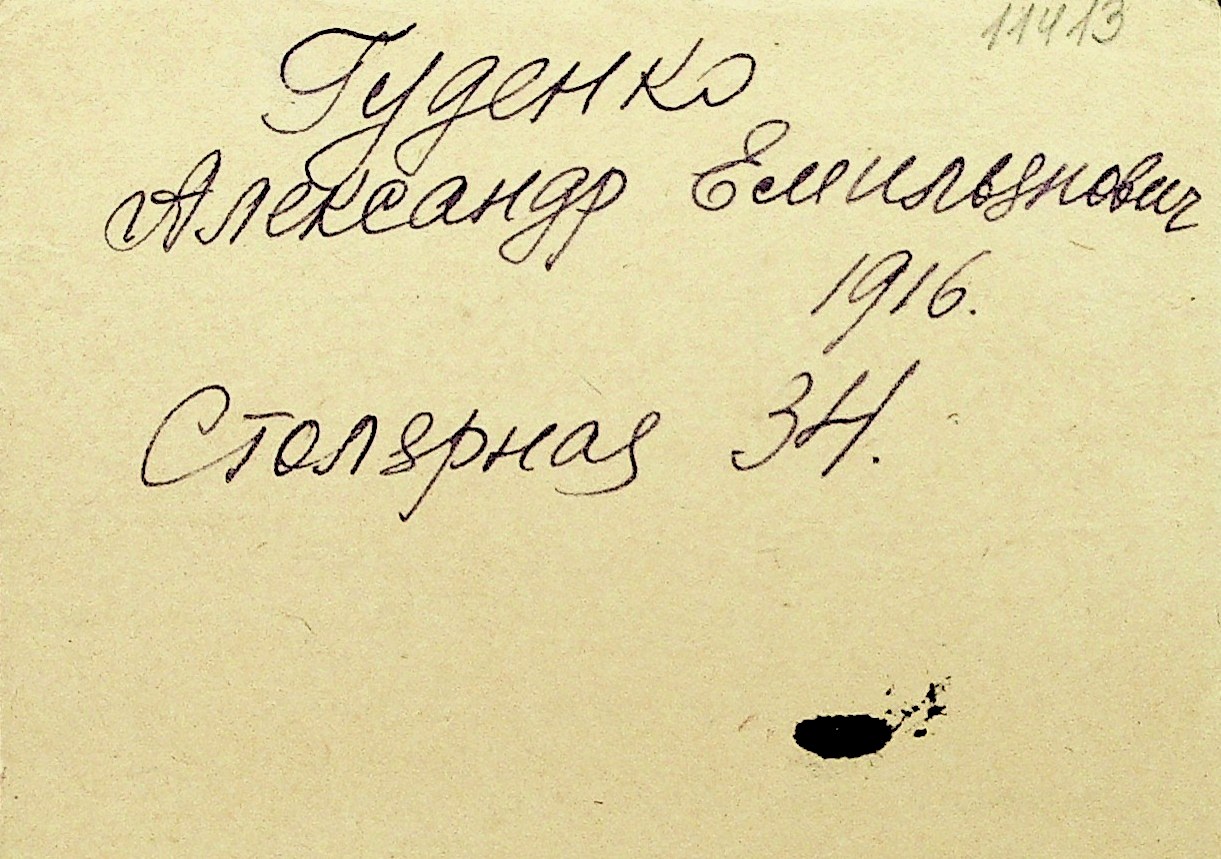 11413
Гуденко
Александр Емильянович
1916.
Столярная 34.